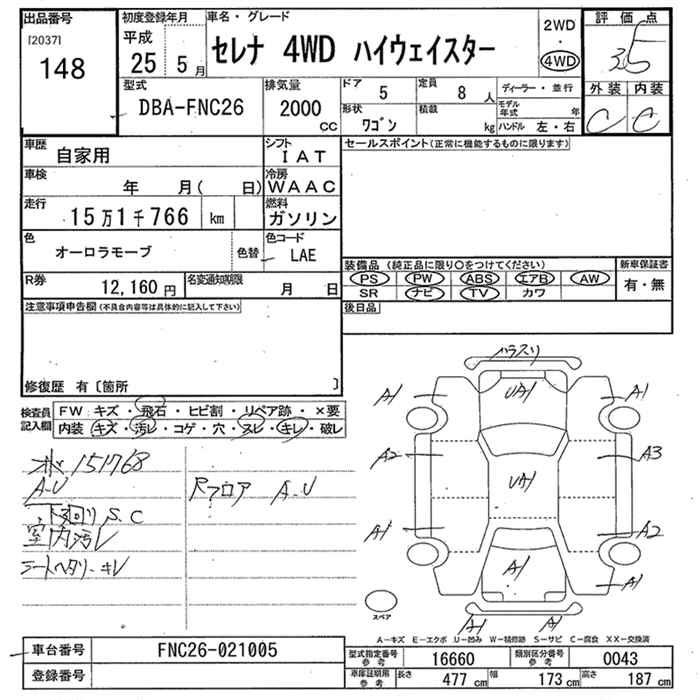 出品番号 初度登録年月 車名・グレード 2WD 評価点
[2037] 平成 セレナ 4WD ハイウェイスター ・ 3.5
148 25年 5月 4WD 外装 内装
型式 排気量 ドア 5 定員 8人 ディーラー・並行 C C
DBA-FNC26 2000cc 形状 ワゴン 積載 kg モデル年式 年
ハンドル 左・右
車歴 自家用 シフト IAT セールスポイント(正常に機能するものに限ります)
車検 年 月( 日) 冷房 WAAC
走行 15万1千766 km 燃料 ガソリン
色 オーロラモーブ 色替 色コード LAE
装備品 (純正品に限り○をつけてください) 新車保証書
R券 12,160円 名変通知期限 月 日 PS PW ABS エアB AW 有・無
SR ナビ TV カワ
注意事項申告欄(不具合内容等は具体的に記入して下さい) 後日品
修復歴 有〔箇所 〕
検査員記入欄 FW キズ・飛石・ヒビ割・リペア跡・×要
内装 キズ・汚レ・コゲ・穴・スレ・キレ・破レ
151768
A-U Rフロア A-U
下回り S.C
室内汚レ
シートヘタリ・キレ
ハラスリ
A1 UA1 A1
A2 UA1 A3
A1 A2
A1 A1
スペア A1 A1
A-キズ E-エクボ U-凹み W-補修跡 S-サビ C-腐食 XX-交換済
車台番号 FNC26-021005
登録番号
型式指定番号 参考 16660 類別区分番号 参考 0043
車庫証明用 参考 長さ 477cm 幅 173cm 高さ 187cm